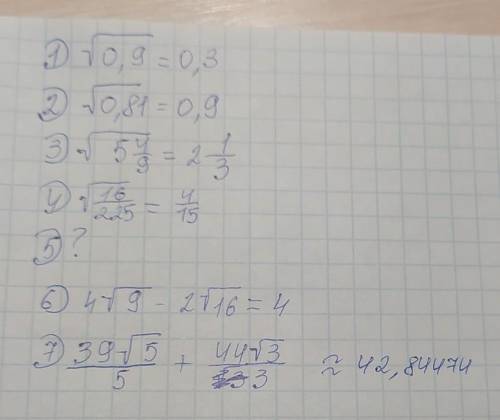 1) √0,9 = 0,3
2) √0,81 = 0,9
3) √5 4/9 = 2 1/3
4) √16/225 = 4/15
5) ?
6) 4√9 - 2√16 = 4
7) 39√5/5 + 44√3/3 ≈ 42,84474